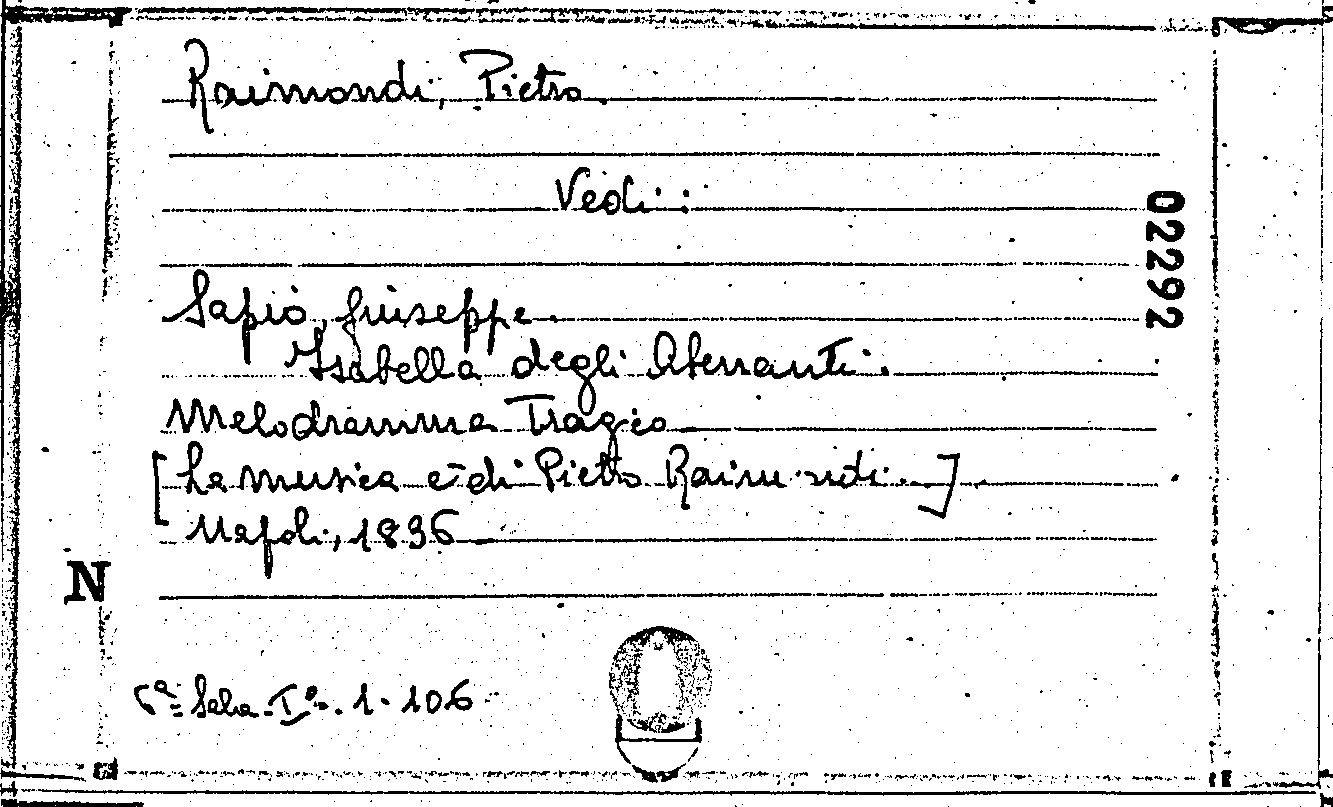 Raimondi, Pietro.
Vedi:
Sapio, Giuseppe.
Isabella degli Abenanti.
Melodramma Tragico
[La musica è di Pietro Raimondi.]
Napoli, 1836
N
Sala. I. 1. 106
02292